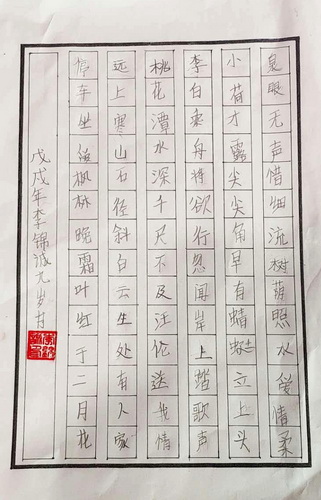 泉眼无声惜细流树荫照水爱情柔
小荷才露尖尖角早有蜻蜓立上头
李白乘舟将欲行忽闻岸上踏歌声
桃花潭水深千尺不及汪伦送我情
远上寒山石径斜白云生处有人家
停车坐爱枫林晚霜叶红于二月花
戊戌年李锦诚九岁书